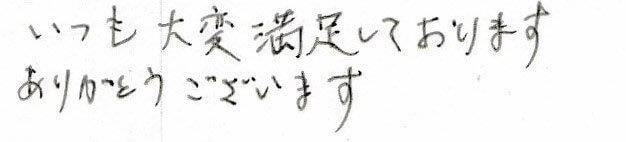 いつも大変満足しております
ありがとうございます